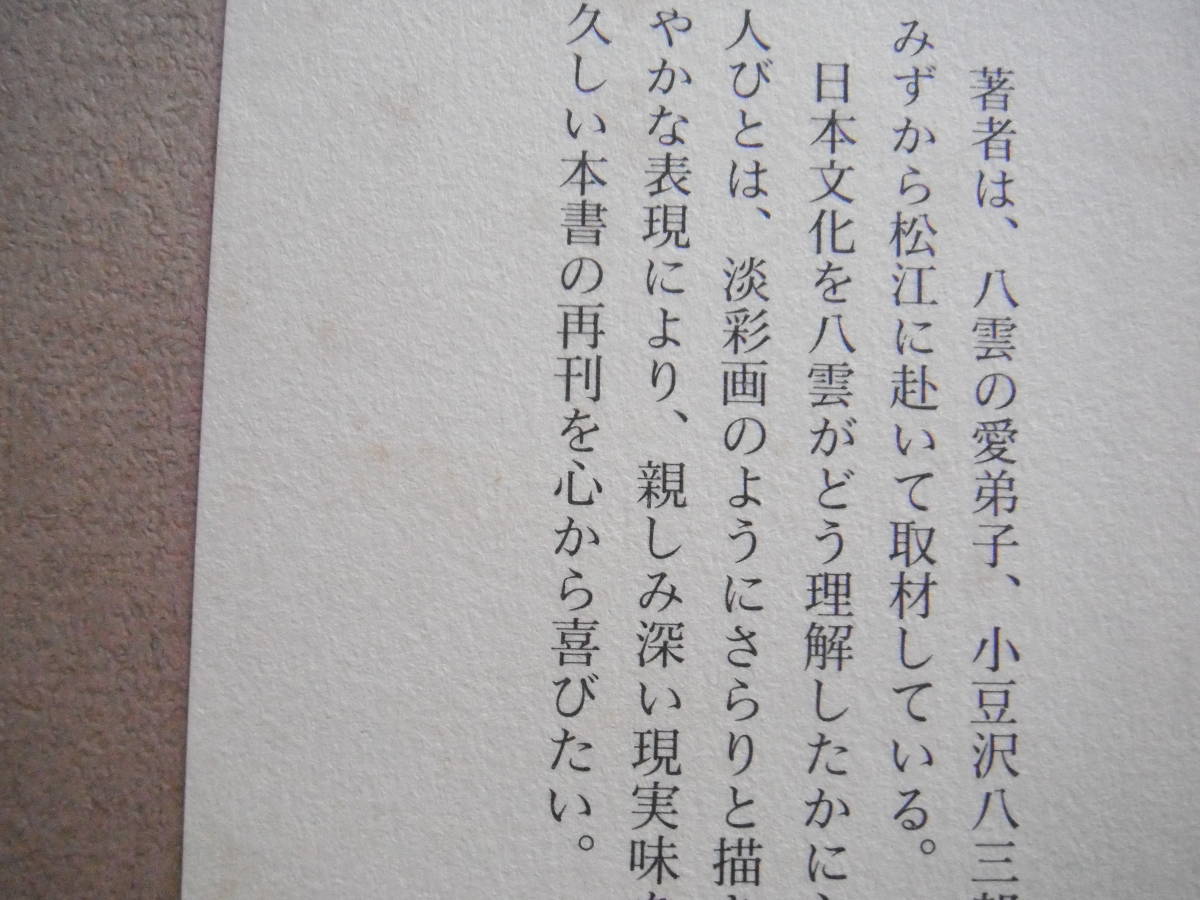 著者は、八雲の愛弟子、小豆沢八三
みずから松江に赴いて取材している。
日本文化を八雲がどう理解したかに
人びとは、淡彩画のようにさらりと描
やかな表現により、親しみ深い現実味
久しい本書の再刊を心から喜びたい。